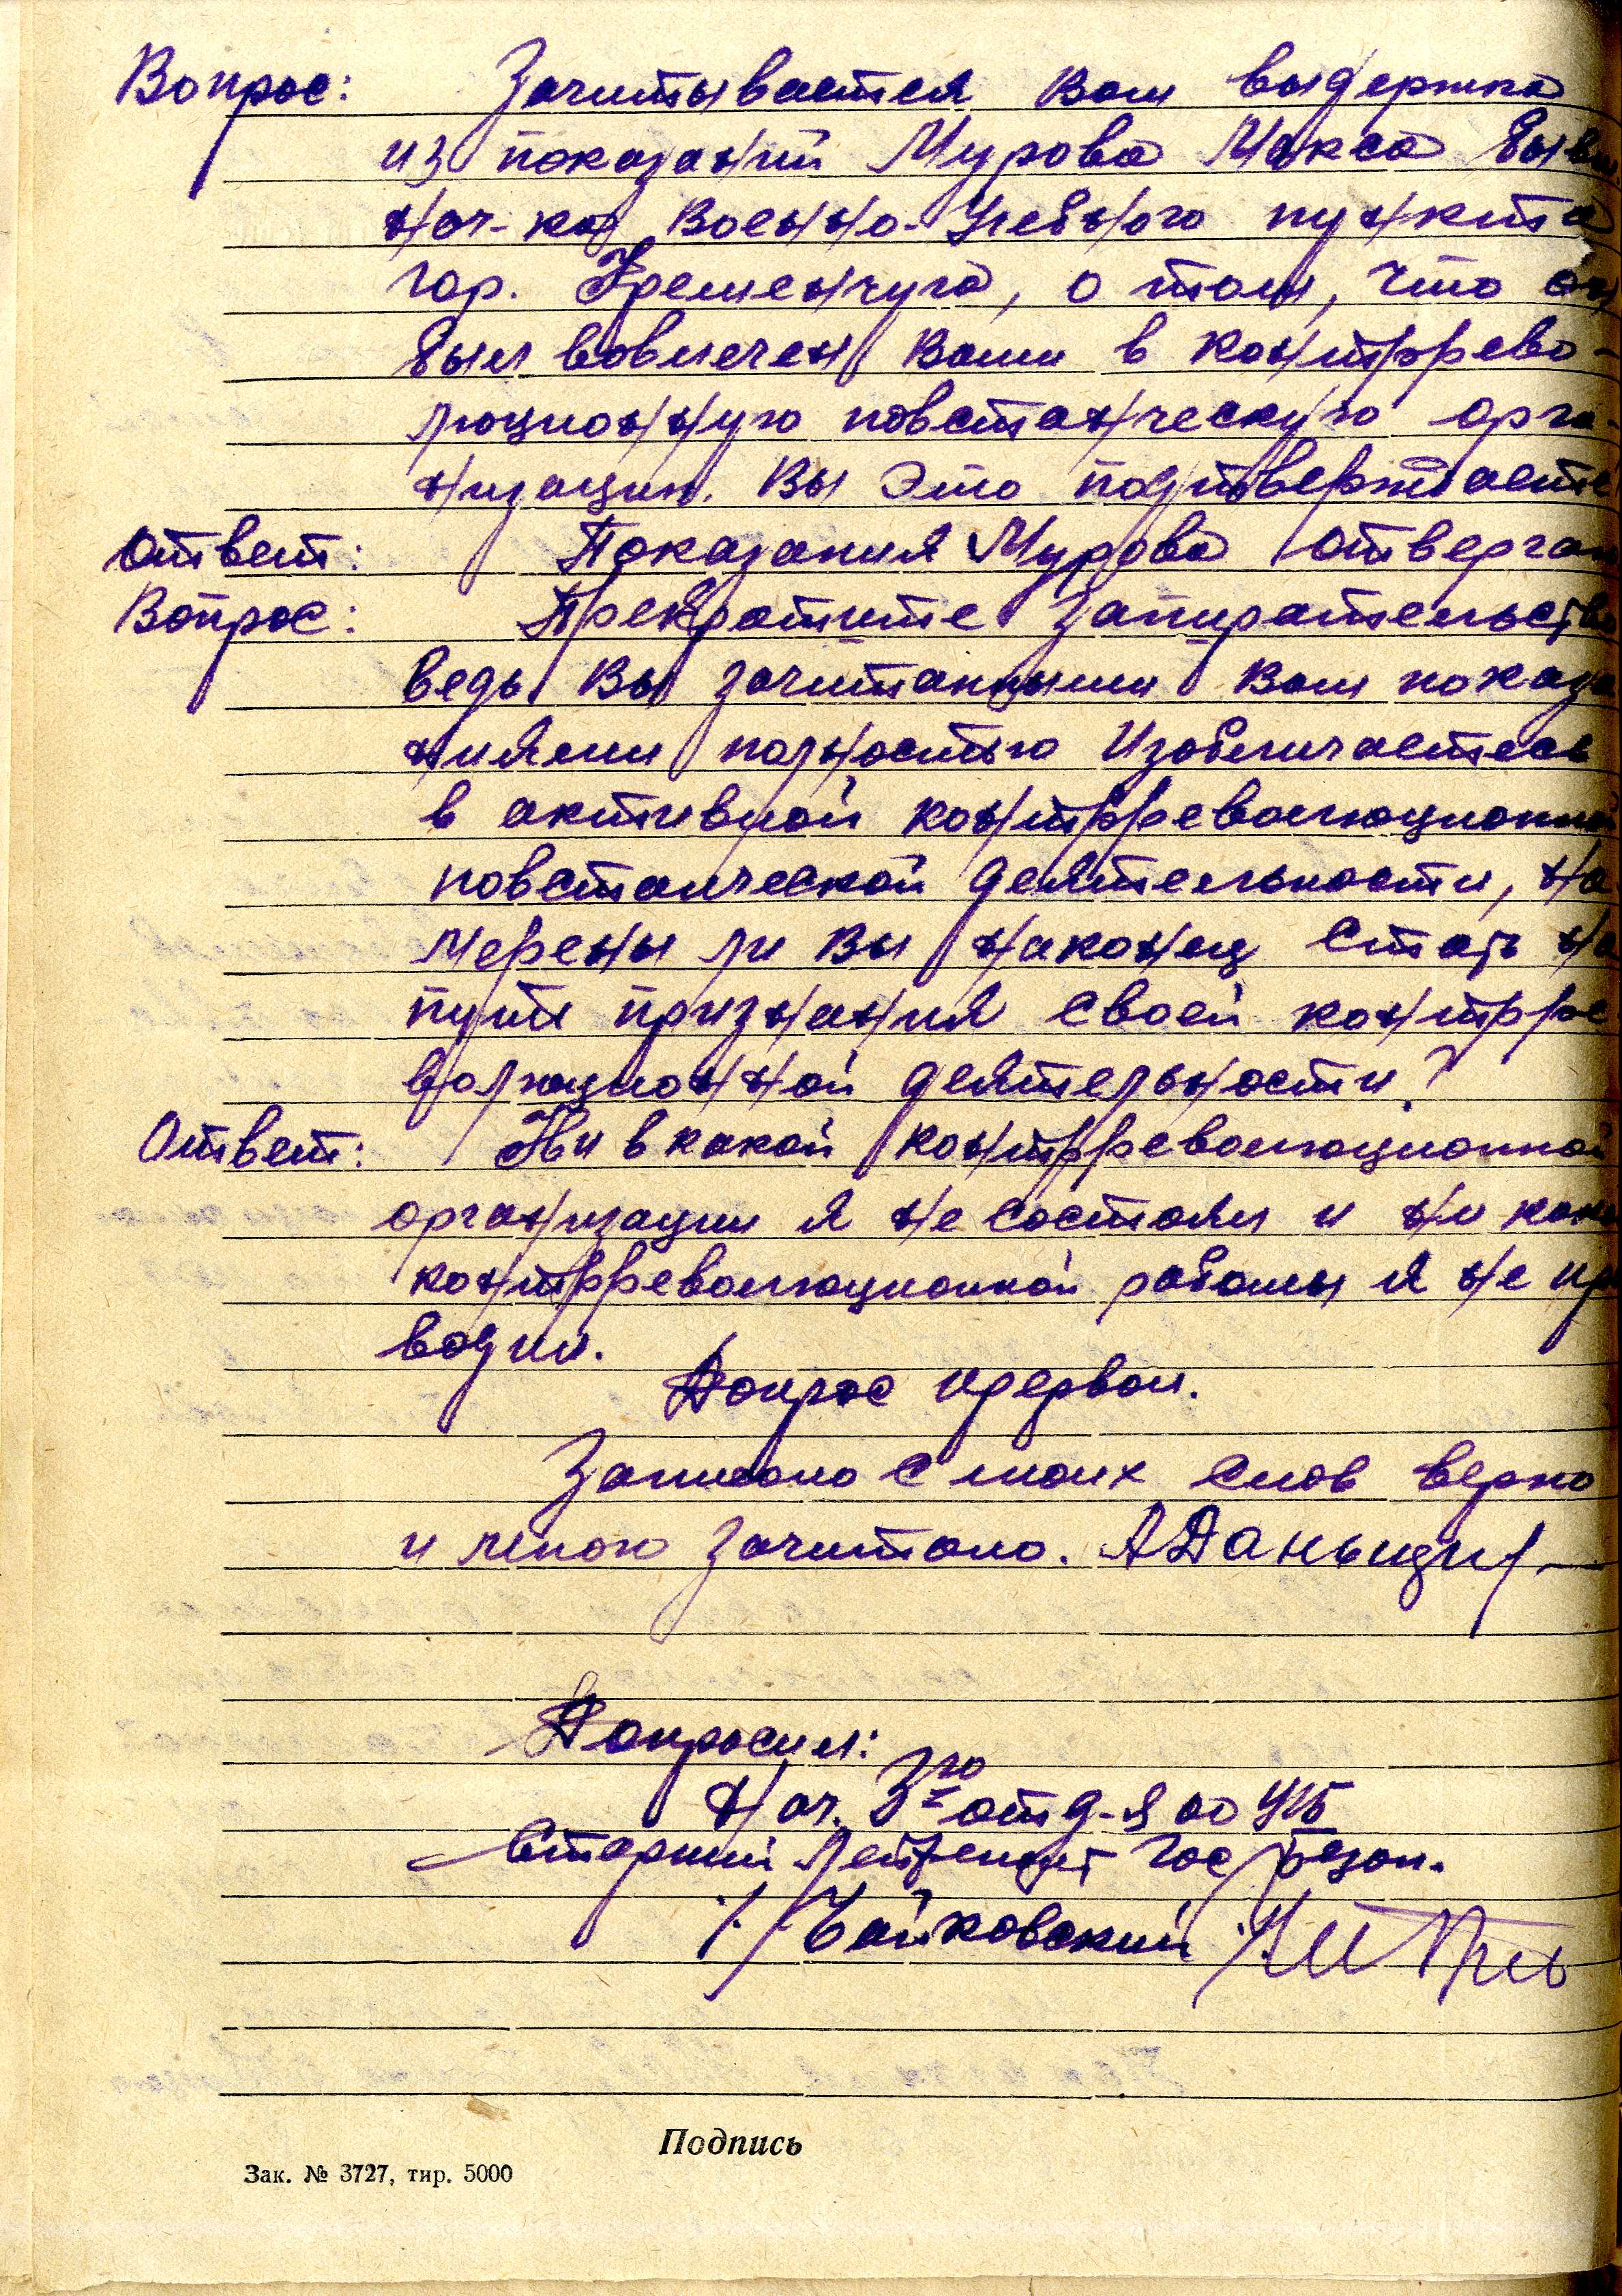 Вопрос: Зачитывается Вам выдержка
из показаний Мурова Макса бывш
нач-ка Военно-Учебного пункта
гор. Кременчуга, о том, что он
был вовлечен Вами в контррево-
люционную повстанческую орга-
низацию. Вы это подтверждаете
Ответ: Показания Мурова отвергаю
Вопрос: Прекратите запирательство
ведь Вы зачитанными Вам показа
ниями полностью изобличаетесь
в активной контрреволюционной
повстанческой деятельности, на
мерены ли Вы наконец стать на
пути признания своей контрре
волюционной деятельности?
Ответ: Ни в какой контрреволюционной
организации я не состоял и ни какой
контрреволюционной работы я не про
водил.
Допрос прерван.
Записано с моих слов верно
и мною зачитано. А Даньщин
Допросил:
Нач. 3го отд-я ОО УГБ
Старший Лейтенант Гос Безоп.
/Чайковский/
Подпись
Зак. № 3727, тир. 5000